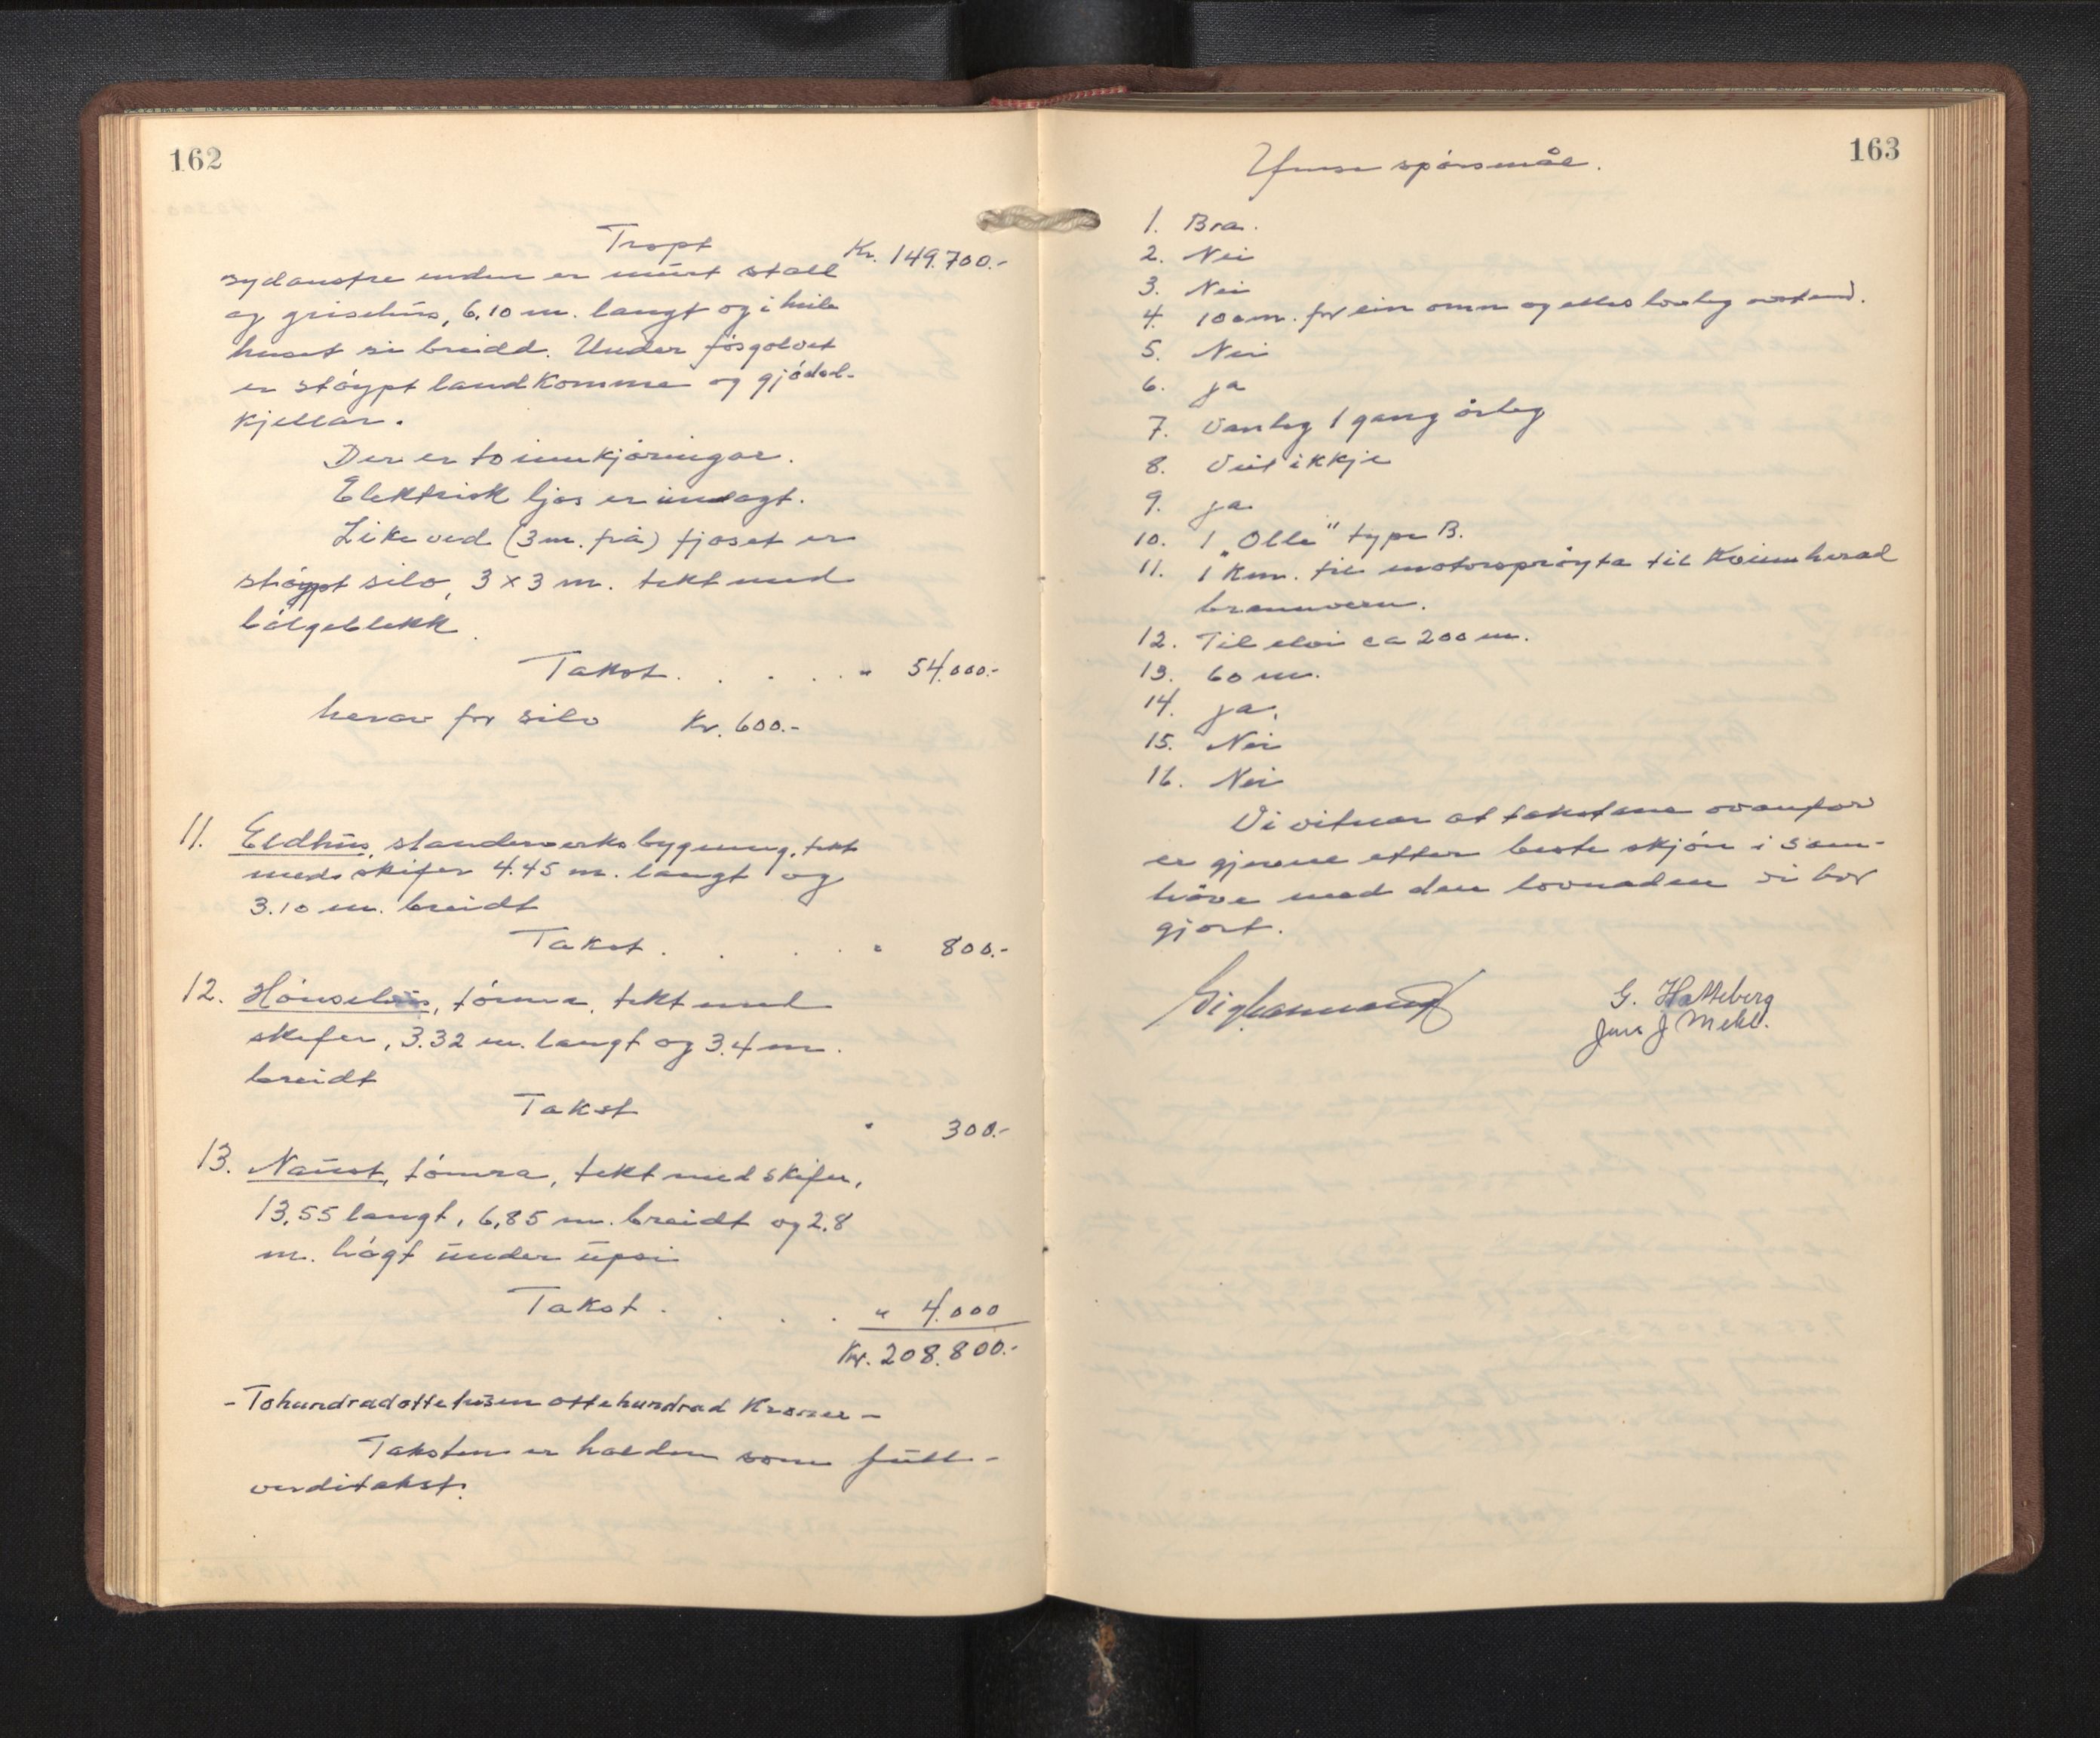 162
Tropt Kr. 149.700.-
sydaustre enden er murt stall
og grisehus, 6,10 m. langt og i heile
huset si breidd. Under fjosgolvet
er stöypt landkomme og gjödsel-
kjellar.
Der er to innkjöringar.
Elektrisk ljos er innlagt.
Like ved (3 m. frå) fjoset er
stöypt silo, 3 x 3 m. tekt med
bölgeblekk.
Takst . . . . " 54.000.-
herav for silo Kr. 600.-
11. Eldhus, standerverksbygning, tekt
med skifer 4.45 m. langt og
3.10 m. breidt
Takst . . . . " 800.-
12. Hönsehus, tömra, tekt med
skifer, 3.32 m. langt og 3.4 m.
breidt
Takst " 300.-
13. Naust, tömra, tekt med skifer,
13,55 langt, 6,85 m. breidt og 2.8
m. högt under upsi
Takst . . . . " 4.000
Kr. 208.800.-
- Tohundradottetusen ottehundrad Kroner -
Taksten er halden som full-
verditakst.
163
Ymse spörsmål.
1. Bra.
2. Nei
3. Nei
4. 100 m. for ein omn og elles lovleg avstand.
5. Nei
6. ja
7. Vanleg 1 gang årleg
8. Veit ikkje
9. ja
10. 1 „Olle" type B.
11. 1 km. til motorspröyta til Kvinnherad
brannvern.
12. Til elvi ca 200 m.
13. 60 m.
14. ja.
15. Nei
16. Nei
Vi vitnar at takstane ovanfor
er gjevne etter beste skjön i sam-
höve med den lovnaden vi hev
gjort.
G. Hatteberg
Jens J Mehl.